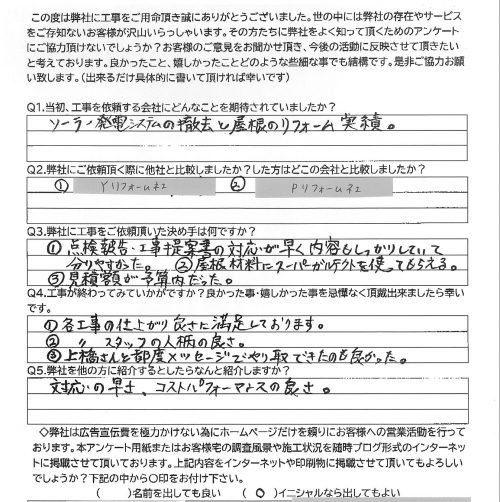 この度は弊社に工事をご用命頂き誠にありがとうございました。世の中には弊社の存在やサービス
をご存知ないお客様が沢山いらっしゃいます。その方たちに弊社をよく知って頂くためのアンケート
にご協力頂けないでしょうか？お客様のご意見をお聞かせ頂き、今後の活動に反映させて頂きたい
と考えております。良かったこと、嬉しかったことどのような些細な事でも結構です。是非ご協力お願
い致します。（出来るだけ具体的に書いて頂ければ幸いです）
Q1.当初、工事を依頼する会社にどんなことを期待されていましたか？
ソーラー発電システムの撤去と屋根のリフォーム実績。
Q2.弊社にご依頼頂く際に他社と比較しましたか？した方はどこの会社と比較しましたか？
① Yリフォームネエ ② Pリフォームネエ
Q3.弊社に工事をご依頼頂いた決め手は何ですか？
①点検報告・工事提案書の対応が早く内容もしっかりしていて
分りやすかった。 ②屋根材料にスーパーガルテクトを使ってもらえる。
③見積額が予算内だった。
Q4.工事が終わってみていかがですか？良かった事・嬉しかった事を忌憚なく頂戴出来ましたら幸い
です。
①各工事の仕上がり良さに満足しております。
② 〃 スタッフの人柄の良さ。
③上橋さんと都度メッセージでやり取できたのも良かった。
Q5.弊社を他の方に紹介するとしたらなんと紹介しますか？
対応の早さ、コストパフォーマンスの良さ。
◇弊社は広告宣伝費を極力かけない為にホームページだけを頼りにお客様への営業活動を行って
おります。本アンケート用紙またはお客様宅の調査風景や施工状況を随時ブログ形式のインターネッ
トに掲載させて頂いております。上記内容をインターネットや印刷物に掲載させて頂いてもよろしい
でしょうか？下記の中から〇印をお付け下さい。
（ ）名前を出しても良い （ 〇 ）イニシャルなら出してもよい